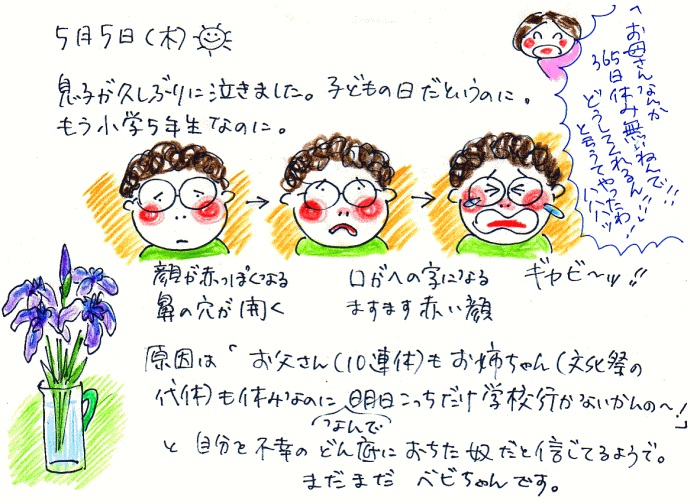 5月5日(木)
息子が久しぶりに泣きました。子どもの日だというのに。
もう小学5年生なのに。
お母さんなんか
365日休み無いねんで!!
どうしてくれるん!!
と言うてやったわ!
ハハハッ
顔が赤っぽくなる
鼻の穴が開く
口がへの字になる
ますます赤い顔
ギャビ〜ッ!!
原因は「お父さん(10連休)もお姉ちゃん(文化祭の
代休)も休みなのに明日こっちだけ学校行かないかんの〜!」
なんで
と自分を不幸のどん底におちた奴だと信じてるようで。
まだまだ ベビちゃんです。